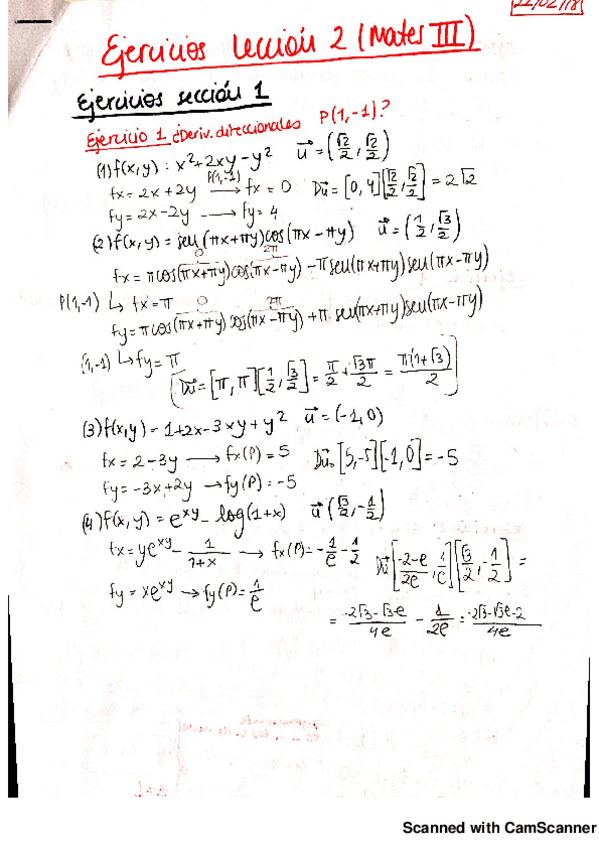 22/02/18
Ejercicios Lección 2 (Mates III)
Ejercicios sección 1
Ejercicio 1 ¿Deriv. direccionales P(1,-1)?
(1) f(x,y) = x²+2xy-y² u⃗=(√2/2, √2/2)
fx=2x+2y —P(1,-1)→ fx=0 Du⃗=[0,4][√2/2, √2/2]=2√2
fy=2x-2y → fy=4
(2) f(x,y)=sen(πx+πy)cos(πx-πy) u⃗=(1/2, √3/2)
0 2π
fx=πcos(πx+πy)cos(πx-πy)-πsen(πx+πy)sen(πx-πy)
P(1,-1) ↳ fx=π 0 2π
fy=πcos(πx+πy)cos(πx-πy)+π sen(πx+πy)sen(πx-πy)
(1,-1) ↳ fy=π
Du⃗=[π,π][1/2, √3/2]=π/2+√3π/2=π(1+√3)/2
(3) f(x,y)=1+2x-3xy+y² u⃗=(-1,0)
fx=2-3y → fx(P)=5 Du⃗=[5,-5][-1,0]=-5
fy=-3x+2y → fy(P)=-5
(4) f(x,y)=e^xy-log(1+x) u⃗(√3/2, -1/2)
fx=ye^xy-1/(1+x) → fx(P)=-1/e-1/2 Du⃗[-2-e/2e, 1/e][√3/2, -1/2]=
fy=xe^xy → fy(P)=1/e
=-2√3-√3e/4e - 1/2e = -2√3-√3e-2/4e
Scanned with CamScanner